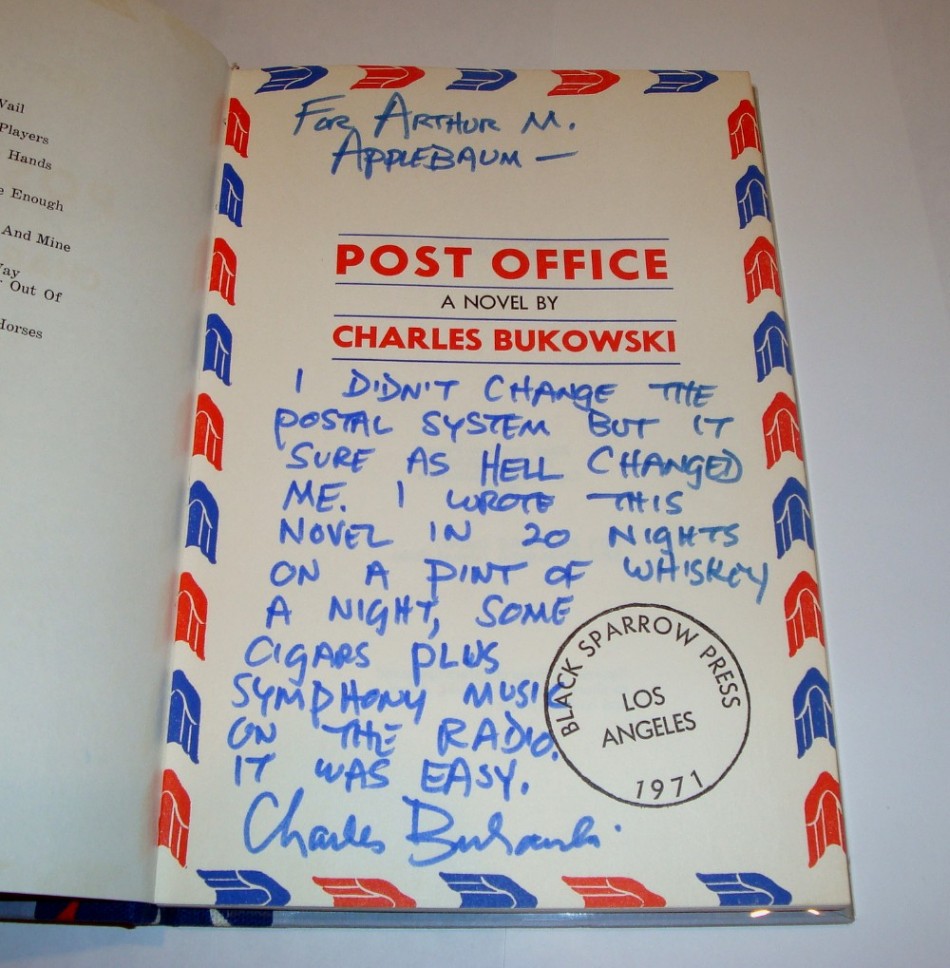 Vail
Players
Hands
e Enough
And Mine
Way
Out Of
Horses
FOR ARTHUR M.
APPLEBAUM —
POST OFFICE
A NOVEL BY
CHARLES BUKOWSKI
I DIDN'T CHANGE THE
POSTAL SYSTEM BUT IT
SURE AS HELL CHANGED
ME. I WROTE THIS
NOVEL IN 20 NIGHTS
ON A PINT OF WHISKEY
A NIGHT, SOME
CIGARS PLUS
SYMPHONY MUSIC
ON THE RADIO.
IT WAS EASY.
Charles Bukowski
BLACK SPARROW PRESS
LOS
ANGELES
1971